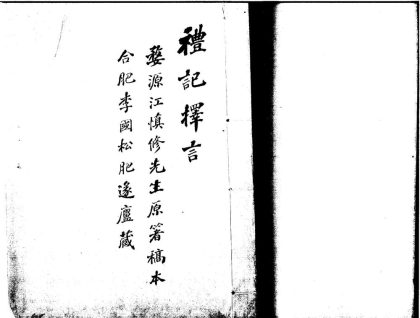 禮記擇言
婺源江慎修先生原箸稿本
合肥李國松肥遂廬藏